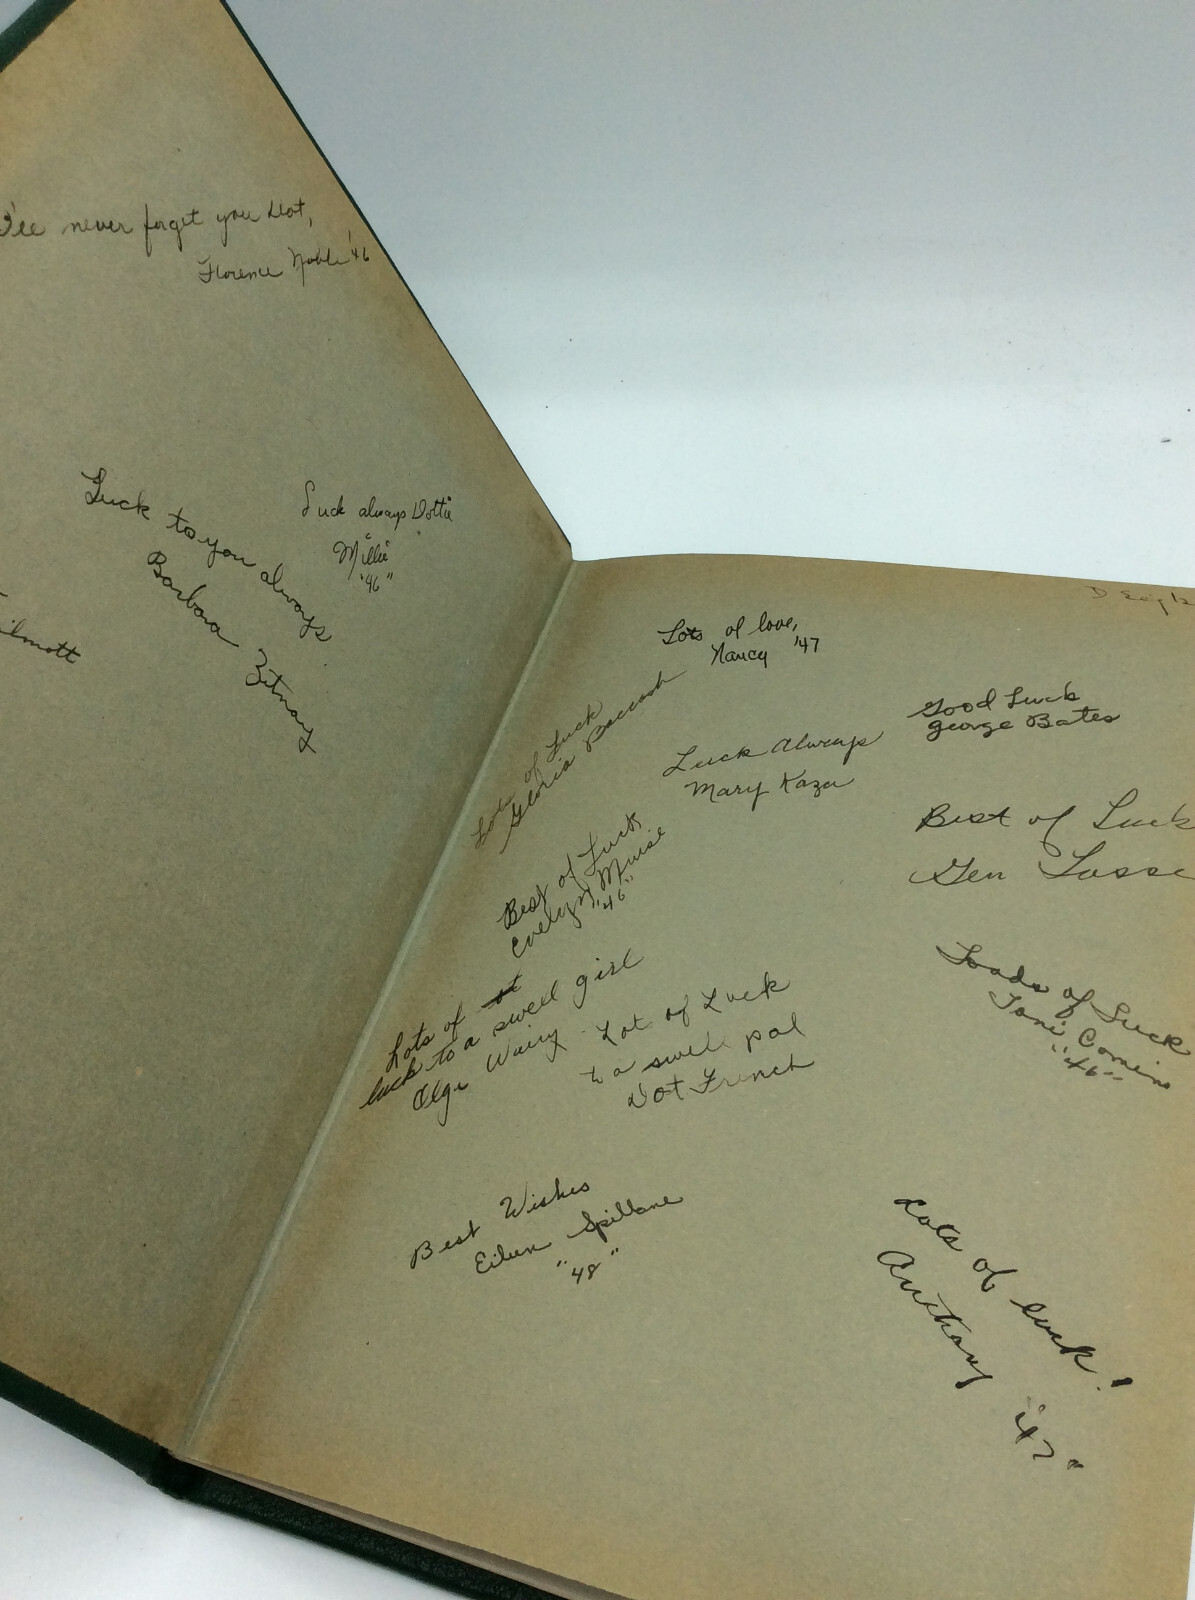 I'll never forget you Dot,
Florence Noble '46
Luck always Dottie
"Millie"
'46"
Luck to you always
Barbara Zitnay
Lots of love,
Nancy '47
Lots of Luck
Gloria
Good Luck
George Bates
Luck Always
Mary Kaza
Best of Luck
Gen
Best of Luck,
Evelyn Muise
"46"
Loads of Luck
Toni Comins
"46"
Lots of
luck to a swell girl
Olga
Lot of Luck
to a swell pal
Dot French
Best Wishes
Eileen Spillane
"48"
Lots of luck!
Anthony '47"